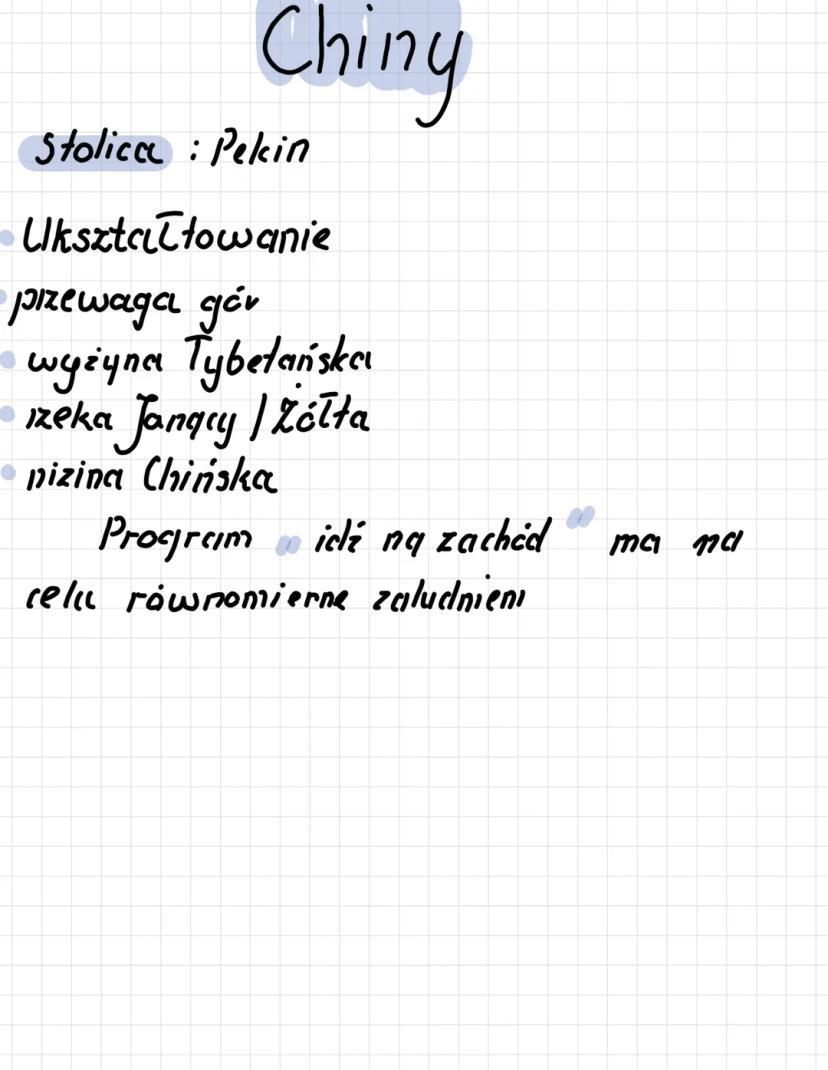 Chiny
Stolica : Pekin
Ukształtowanie
przewaga gór
wyżyna Tybetańska
rzeka Jangcy / Żółta
nizina Chińska
Program „ idź na zachód " ma na
celu równomierne zaludnieni